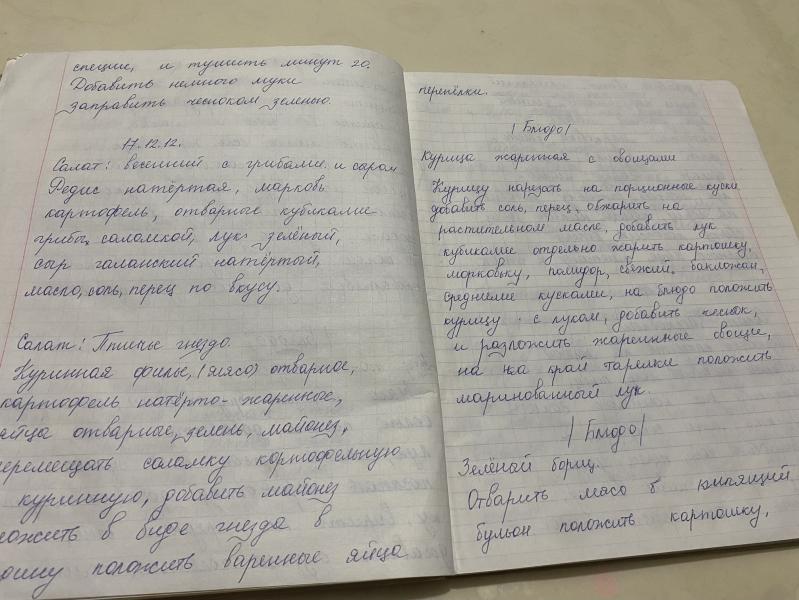 специи, и тушить минут 20.
Добавить немного муки
заправить чесноком зеленью.
17.12.12.
Салат: весенний с грибами и сыром
Редис натёртая, марковь
картофель, отварные кубикамие
грибы, саломкой, лук зелёный,
сыр галанский натёртый,
масло, соль, перец по вкусу.
Салат: Птичье гнездо.
Куринная филье, (мясо) отварное,
картофель натёрто-жаренные,
яйца отварные, зелень, майонез,
перемещать саломку кортофельную
куринную, добавить майонез
ложить в виде гнезда в
положить варенные яйца
перепёлки.
| Блюдо |
Курица жаринная с овощами
Курицу нарезать на порционные куски
добавить соль, перец, обжарить на
растительном масле, добавить лук
кубикамие отдельно жарить картошку,
морковьку, помидор, свежий, баклажан,
средними кусками, на блюдо положить
курицу с луком, добавить чеснок,
и разложить жаренные овощи,
на на край тарелки положить
маринованный лук.
| Блюдо |
Зелёнай борщ.
Отварить мясо в кипящий
бульон положить картошку,